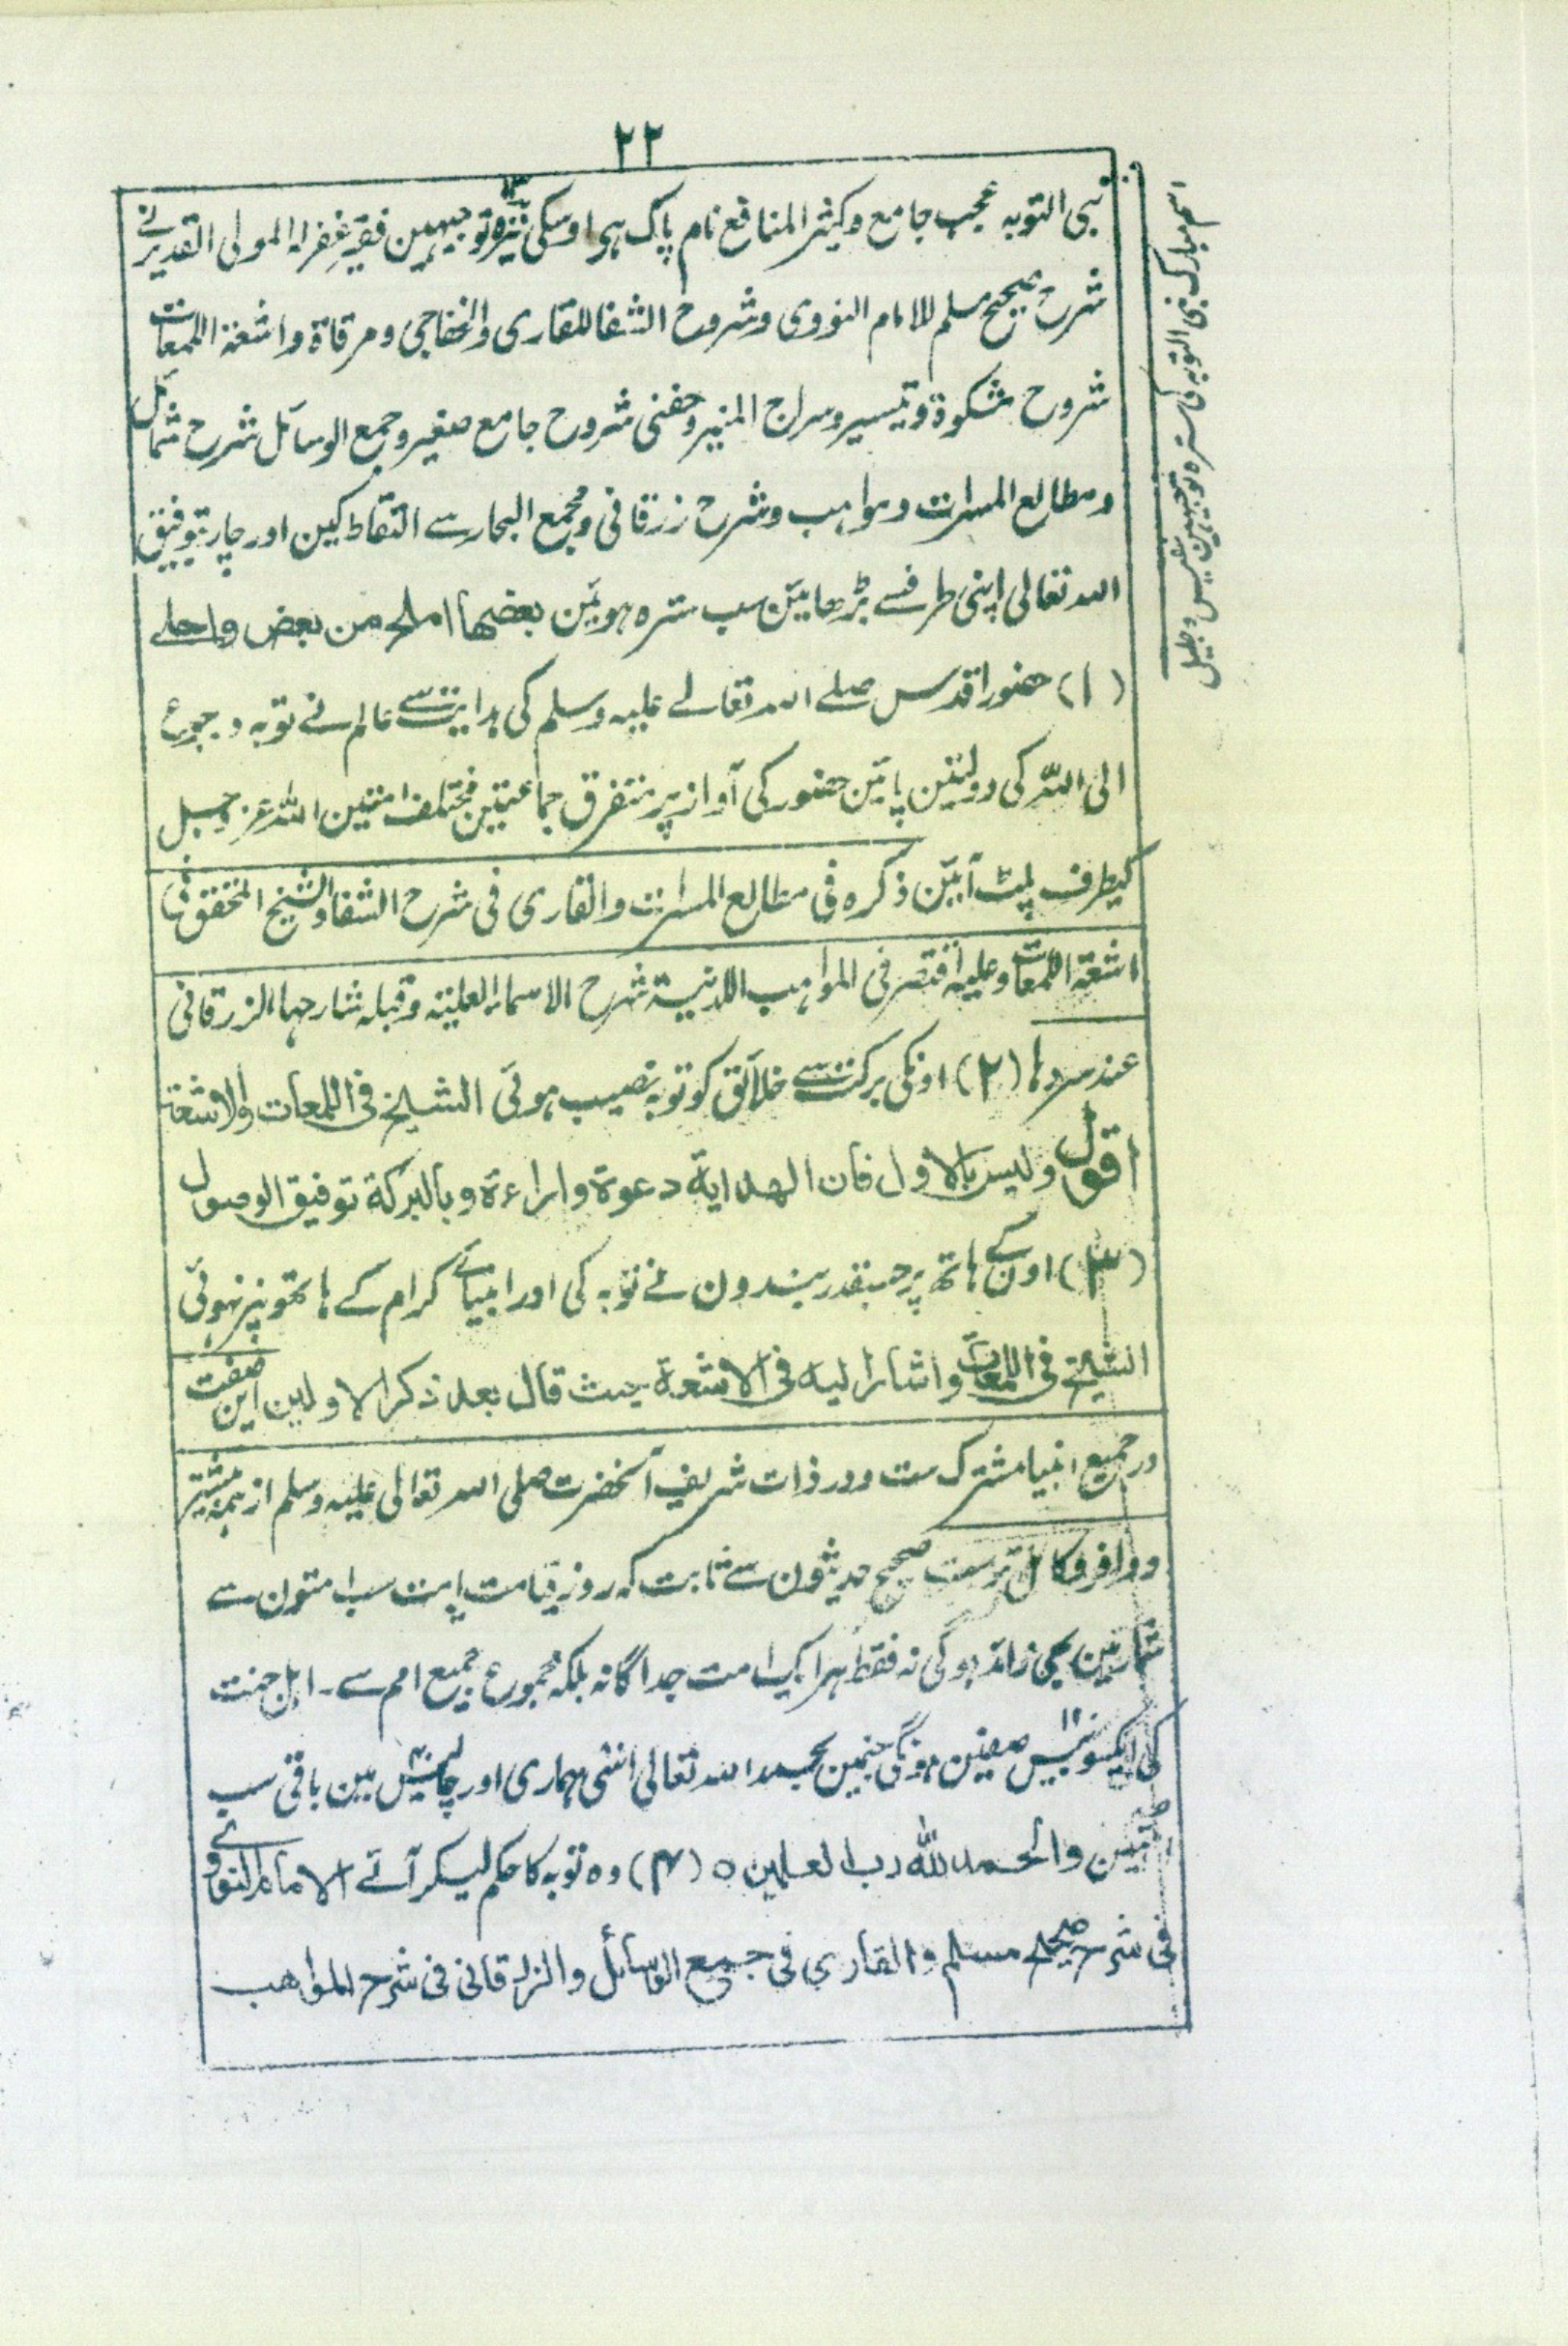 ۲۲
نبی التوبہ عجیب جامع وکثیر المنافع نام پاک ہی اوسکی تیرہ ۱۳ توجیہین فقیر غفرلہ المولی القدیر نے
شرح صحیح مسلم للامام النووی وشروح الشفا للقاری والخفاجی ومرقاۃ واشعۃ اللمعات
شروح مشکوۃ وتیسیر وسراج المنیر وحفنی شروح جامع صغیر وجمع الوسائل شرح شمائل
ومطالع المسرات ومواہب وشرح زرقانی ومجمع البحار سے التقاط کین اور چار بتوفیق
اللہ تعالی اپنی طرفسے بڑھائین سب سترہ ہوئین بعضہا املح من بعض واحلے
(۱) حضور اقدس صلے اللہ تعالے علیہ وسلم کی ہدایت سے عالم نے توبہ ورجوع
الی اللہ کی دولتین پائین حضور کی آواز پر متفرق جماعتین مختلف امتین اللہ عزوجل
کیطرف پلٹ آئین ذکرہ فی مطالع المسرات والقاری فی شرح الشفا والشیخ المحقق فی
اشعۃ اللمعات وعلیہ اقتصر فی المواہب اللدنیۃ شرح الاسماء العلیۃ وقبلہ شارحہا الزرقانی
عند سردہا (۲) اونکی برکت سے خلائق کو توبہ نصیب ہوئی الشیخ فی اللمعات والاشعۃ
اقول ولیس بالاول فان الہدایۃ دعوۃ واراءۃ وبالبرکۃ توفیق الوصول
(۳) اون کے ہاتھ پر جسقدر بندون نے توبہ کی اور انبیائے کرام کے ہاتھونپر نہوئی
الشیخ فی اللمعات واشار الیہ فی الاشعۃ حیث قال بعد ذکر الاولین این صفت
در جمیع انبیا مشترک ست ودر ذات شریف آنحضرت صلی اللہ تعالی علیہ وسلم از ہمہ بیشتر
ووافر وکامل ترست صحیح حدیثون سے ثابت کہ روز قیامت یہ امت سب امتون سے
شمار مین بھی زائد ہوگی نہ فقط ہر ایک امت جداگانہ بلکہ مجموع جمیع امم سے۔ اہل جنت
کی ایکسو بیس صفین ہونگی جنمین بحمد اللہ تعالی اسّی ہماری اور چالیس مین باقی سب
امتین والحمد للہ رب العلمین ہ (۴) وہ توبہ کا حکم لیکر آئے الامام النووی
فی شرح صحیح مسلم والقاری فی جمع الوسائل والزرقانی فی شرح المواہب
اسم مبارک نبی التوبہ کی سترہ توجیہین نفیس وجلیل